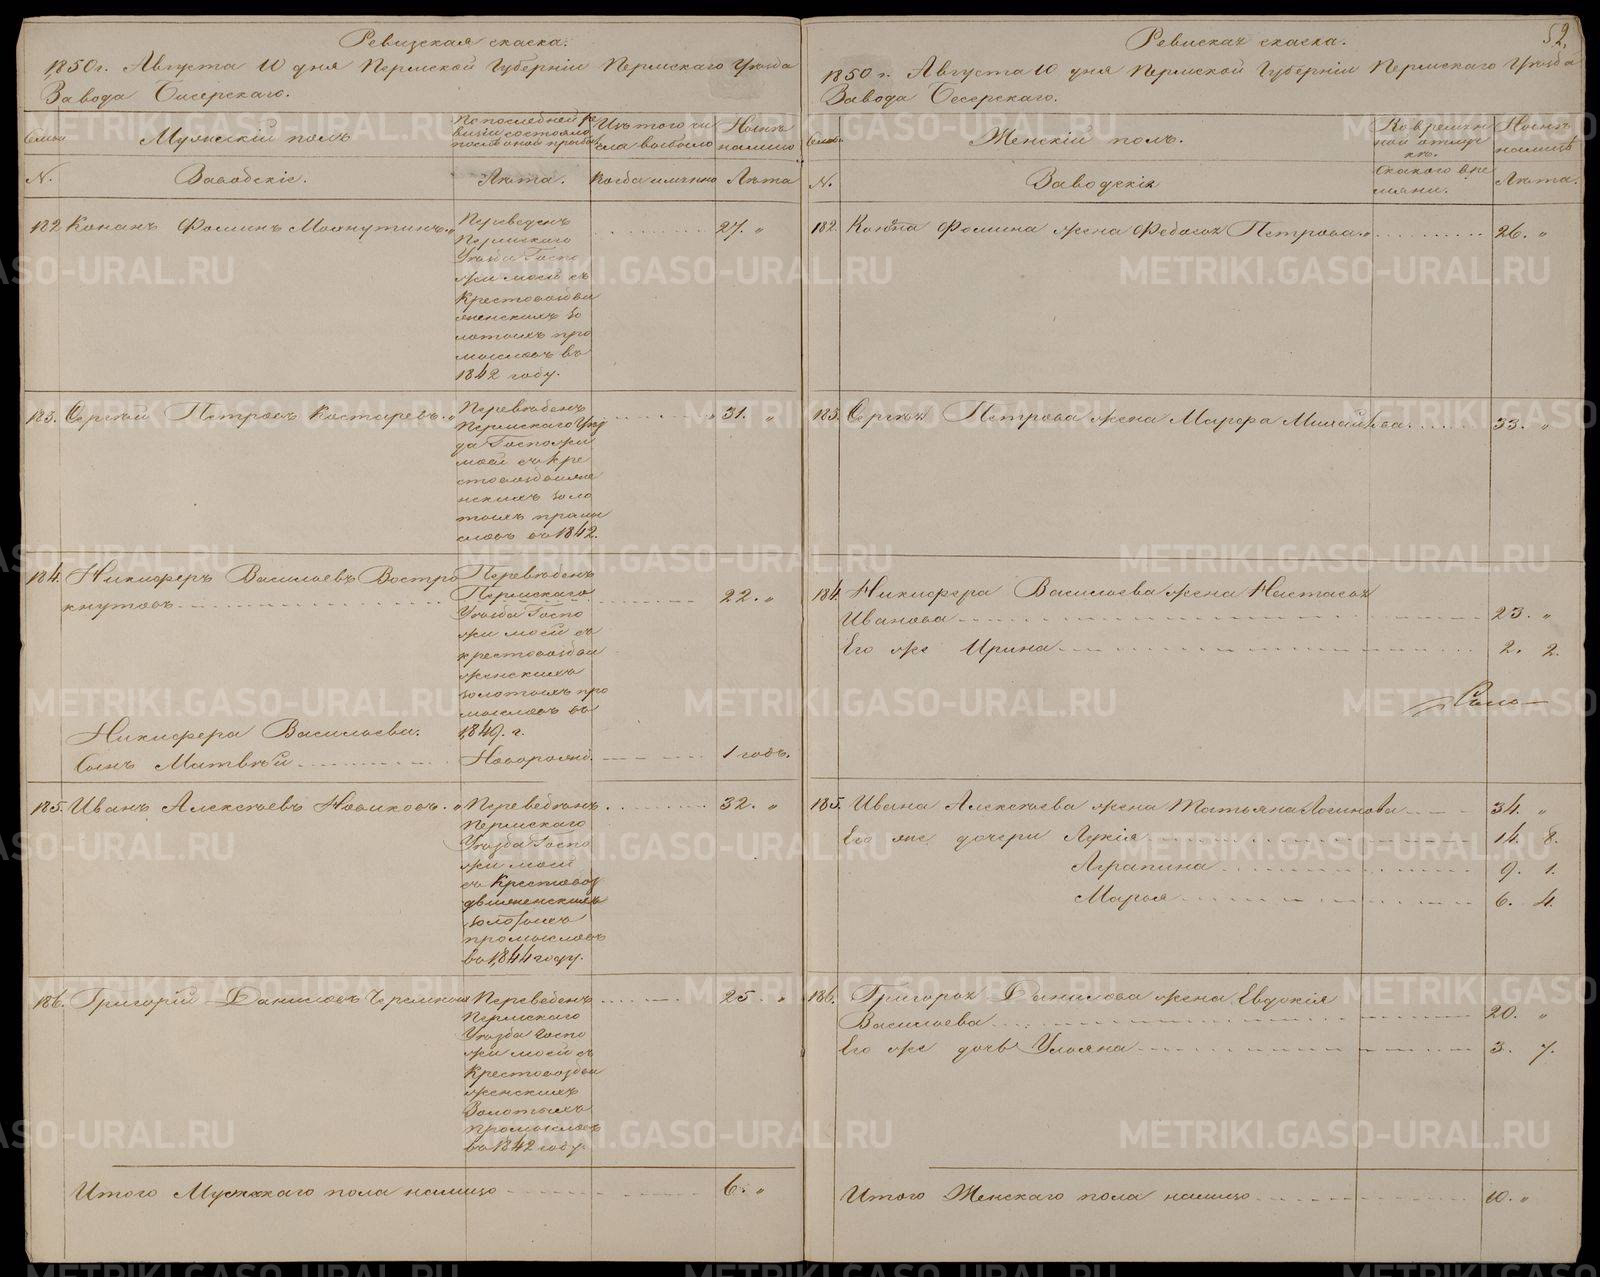 Ревизская скаска.
1850 г. Августа 10 дня Пермской Губерніи Пермскаго Уѣзда
Завода Сысерскаго.
Мужскій полъ
По последней ре
визіи состояло
и послѣ оной прибыло
Изъ того чи
сла выбыло
Нынѣ
налицо
N.
Заводскіе.
Лѣта.
Когда именно
Лѣта
182 Кононъ Фоминъ
Переведенъ
Пермскаго
Уѣзда Госпо
жи моей съ
Крестовоздви
женскихъ зо
лотыхъ про
мысловъ въ
1842 году.
27. "
183. Сергѣй Петровъ Костаревъ. "
Переведенъ
Пермскаго Уѣз
да Госпожи
моей съ Кре
стовоздвиже
нскихъ золо
тыхъ промы
словъ въ 1842.
31. "
184. Никифоръ Васильевъ Востро
кнутовъ
Переведенъ
Пермскаго
Уѣзда Госпо
жи моей съ
крестовоздви
женскихъ
золотыхъ про
мысловъ въ
1849. г.
22. "
Никифора Васильева.
Сынъ Матвѣй
Новорожд.
1 годъ.
185. Иванъ Алексѣевъ Новиковъ. "
Переведенъ
Пермскаго
Уѣзда Госпо
жи моей
съ Крестовоз
движенскихъ
золотыхъ
промысловъ
въ 1844 году.
32. "
186. Григорій Даниловъ
Переведенъ
Пермскаго
Уѣзда Госпо
жи моей съ
Крестовоздви
женскихъ
Золотыхъ
промысловъ
въ 1842 году.
25. "
Итого Мужскаго пола налицо
6. "
52.
Ревиская скаска.
1850 г. Августа 10 дня Пермской Губерніи Пермскаго Уѣзда
Завода Сысерскаго.
Женскій полъ.
Во времян
ной отлуч
кѣ.
Нынѣ
налицѣ
N.
Заводскія
Скакого вре
мяни.
Лѣта.
182. Конона Фомина жена Федосья Петрова. "
26. "
183. Сергѣя Петрова жена Марфа Михайлова
33. "
184. Никифора Васильева жена Настасья
Иванова
23. "
Его же Ирина
2. 2.
185. Ивана Алексѣева жена Татьяна Логинова
34. "
Его же дочери Лукія
14. 8.
Аграпина
9. 1.
Марья
6. 4.
186. Григорья Данилова жена Евдокія
Васильева
20. "
Его же дочь Ульяна
3. 7.
Итого Женскаго пола налицо
10. "
METRIKI.GASO-URAL.RU